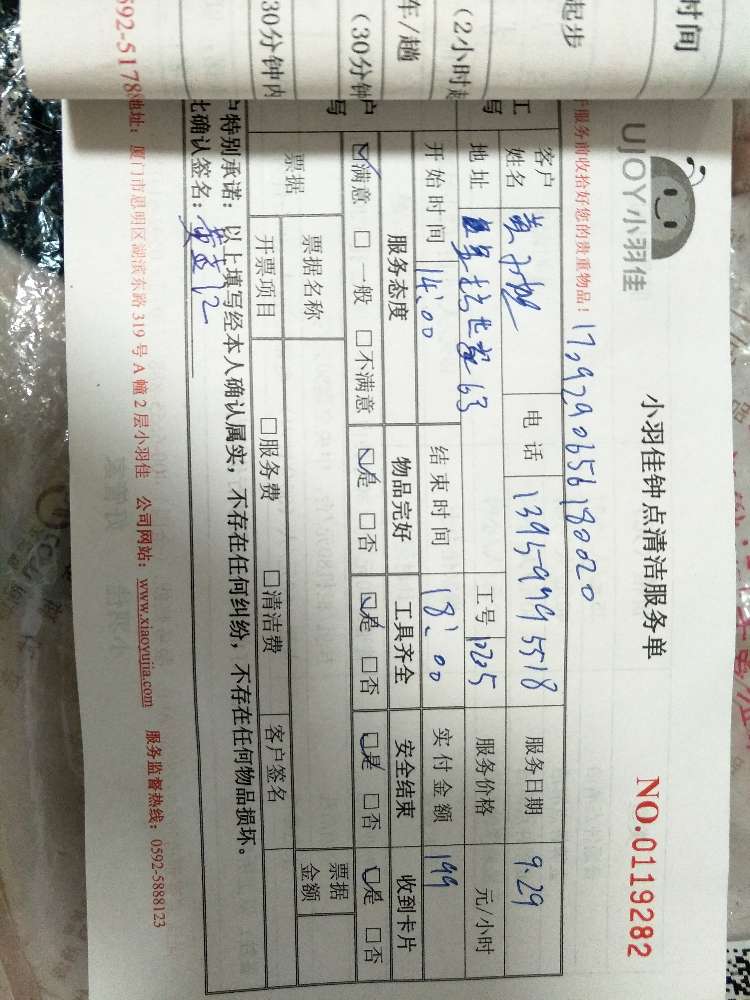 时间
起步
(2小时起
车/趟
(30分钟
30分钟内
592-5178
UJOY小羽佳
小羽佳钟点清洁服务单
NO.0119282
服务前收拾好您的贵重物品！
客户姓名 电话 13959995518 服务日期 9.29
地址 63 工号 服务价格 元/小时
开始时间 14:00 结束时间 18:00 实付金额 199
服务态度 物品完好 工具齐全 安全结束 收到卡片
☑满意 □一般 □不满意 ☑是 □否 ☑是 □否 ☑是 □否 ☑是 □否
票据 票据名称 票据金额
开票项目 □服务费 □清洁费 客户签名
户特别承诺：以上填写经本人确认属实，不存在任何纠纷，不存在任何物品损坏。
比确认签名：
地址：厦门市思明区湖滨东路 319 号 A 幢 2 层小羽佳 公司网站：www.xiaoyujia.com 服务监督热线：0592-5888123